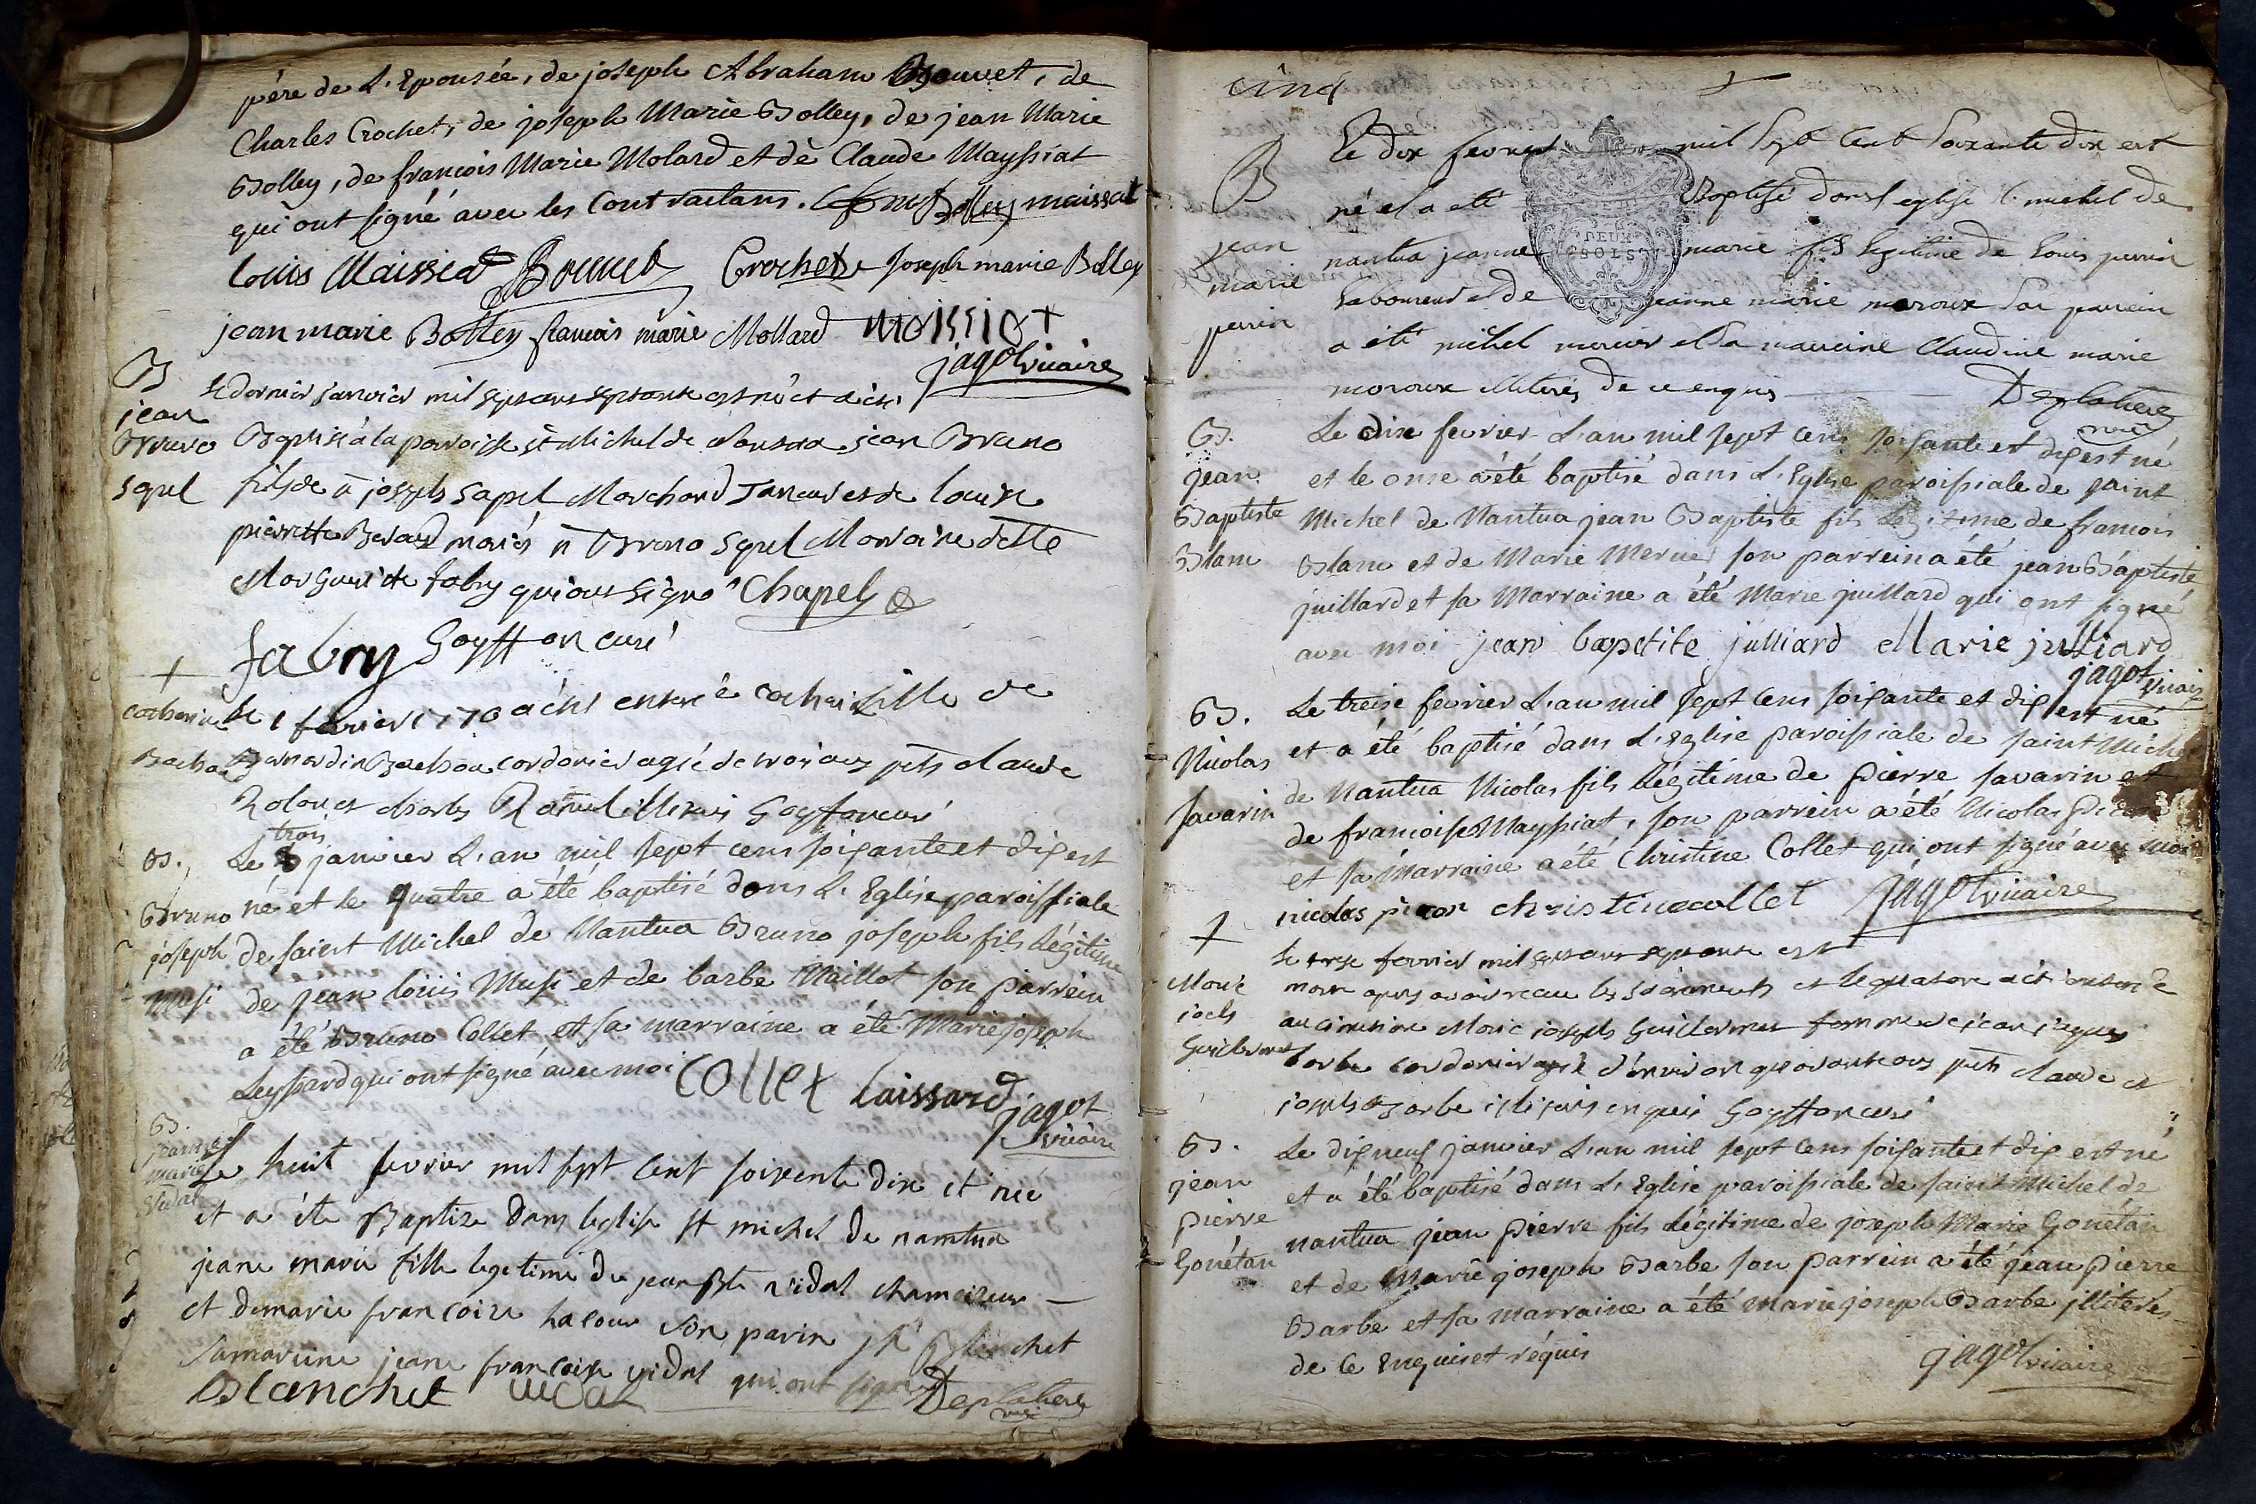 père de L'Epousée, de joseph Abraham Bouvet, de
Charles Crochet, de joseph Marie Bolley, de jean Marie
Bolley, de françois Marie Molard et de Claude Mayssiat
qui ont signé avec les Contractans. Bolley maissiat
louis Maissiat Bouvet Crochet joseph marie Bolley
jean marie Bolley francois marie Mollard moissiat
jagot vicaire
B
jean
Bruno
Sapel
Le dernier janvier mil sept cens septante est né et a été
Baptisé à la paroisse st Michel de Nantua jean Bruno
fils de joseph Sapel Marchand Taneur et de louise
pierrette Beraud mariés Bruno Sapel Marraine delle
Marguerite fabry qui ont signé Chapel
fabry Goyffon curé
+
Catherine
Bachod
Le 1 fevrier 1770 a été enterrée fille de
Bernardin Bachod cordonier agée de trois ans pnts claude
Rolou et charles illiterés Goyffon curé
B.
Bruno
joseph
Musi
Le trois janvier L'an mil sept cens soissante et dix est
né et le quatre a été baptisé dans L'Eglise paroissiale
de saint Michel de Nantua Bruno joseph fils légitime
de jean loüis Musi et de barbe Maillot son parrein
a été Bruno Collet et sa marraine a été Marie joseph
Leyssard qui ont signé avec moi Collet laissard
jagot
vicaire
B.
jeanne
marie
Vidal
Le huit fevrier mil sept cent soixente dix et née
et a été Baptize dans leglise st michel de nantua
jeane marie fille legetime de jean Bte vidal chamoiseur
et de marie francoize son parin jh Blanchet
sa marene jeane francoise vidal qui ont signé
Blanchet vidal Deplatiere
vic
cinq
B
jean
marie
perrin
Le dix fevrier mil Sept Cent Soixante dix est
né et a eté Baptisé dans l eglise st michel de
nantua jeanne marie fils legitime de Louis perrin
Laboureur et de jeanne marie moroux Son parrein
a été michel mercier et Sa maraine Claudine marie
moroux illiterés de ce enquis
Deplatiere
vic
DEUX
SOLS
B.
jean
Baptiste
Blanc
Le dix fevrier L'an mil sept cens soissante et dix est né
et le onse a été baptisé dans L'Eglise paroissiale de saint
Michel de Nantua jean Baptiste fils Légitime de francois
Blanc et de Marie Mernet son parrein a été jean Baptiste
juillard et sa Marraine a été Marie juillard qui ont signé
avec moi jean bapetite julliard Marie julliard
jagot vicaire
B.
Nicolas
Savarin
Le treise fevrier L'an mil sept cens soissante et dix est né
et a été baptisé dans L'Eglise paroissiale de saint Michel
de Nantua Nicolas fils Légitime de Pierre Savarin et
de francoise Mayssiat, son parrein a été Nicolas
et sa marraine a été Christine Collet qui ont signé avec moi
nicolas christinecollet jagot vicaire
+
Marie
joseph
Guillermet
Le treze fevrier mil sept cens septante est
morte apres avoir recu les sacrements et le quatorze a été enterrée
au cimetiere Marie joseph Guillermet femme de jean jaques
barbe cordonier agée d'environ quarante ans pnts claude et
joseph Barbe illiterés enquis Goyffon curé
B.
jean
pierre
Gonétan
Le dix neuf janvier L'an mil sept cens soissante et dix est né
et a été baptisé dans L'Eglise paroissiale de saint Michel de
nantua jean Pierre fils Légitime de joseph Marie Gonétan
et de Marie joseph Barbe son parrein a été jean Pierre
Barbe et sa marraine a été Marie joseph Barbe jlliterés
de ce Enquis et réquis
jagot vicaire